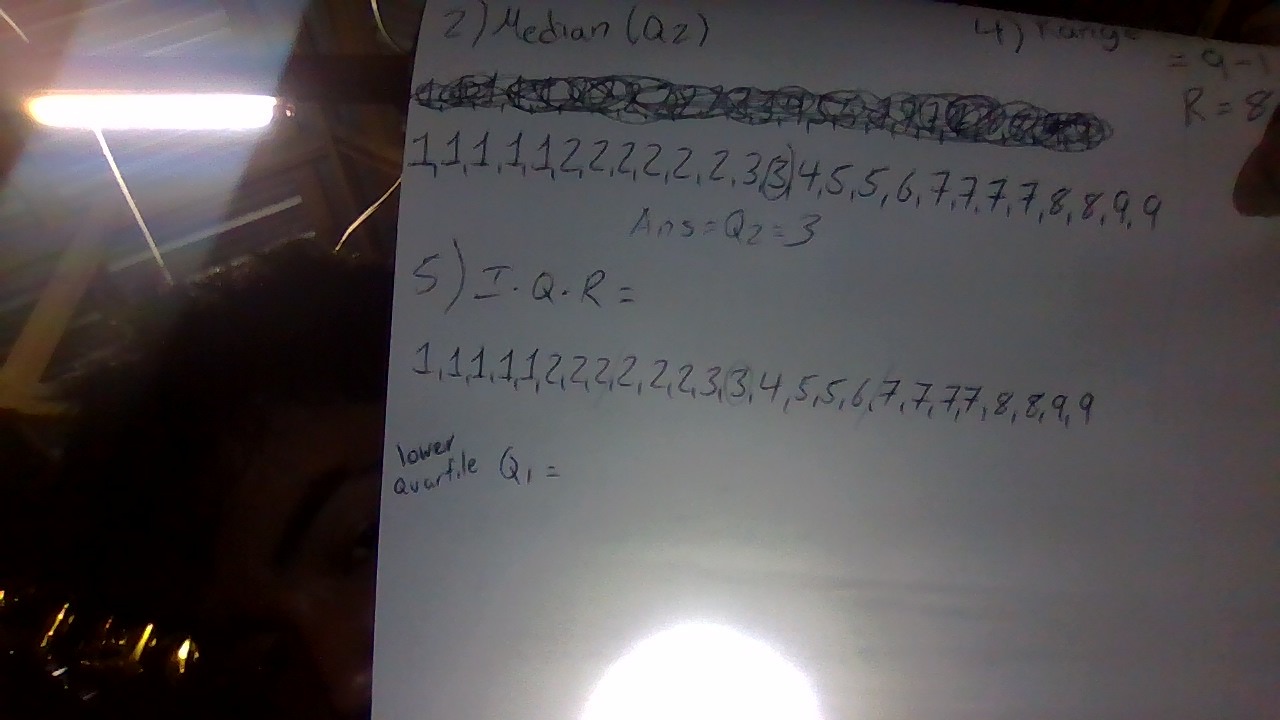 2) Median (Q2)
4) range
= 9 - 1
R = 8
1,1,1,1,1,2,2,2,2,2,2,3,3,4,5,5,6,7,7,7,7,8,8,9,9
Ans = Q2 = 3
5) I.Q.R =
1,1,1,1,1,2,2,2,2,2,2,3,3,4,5,5,6,7,7,7,7,8,8,9,9
lower
Quartile Q1 =